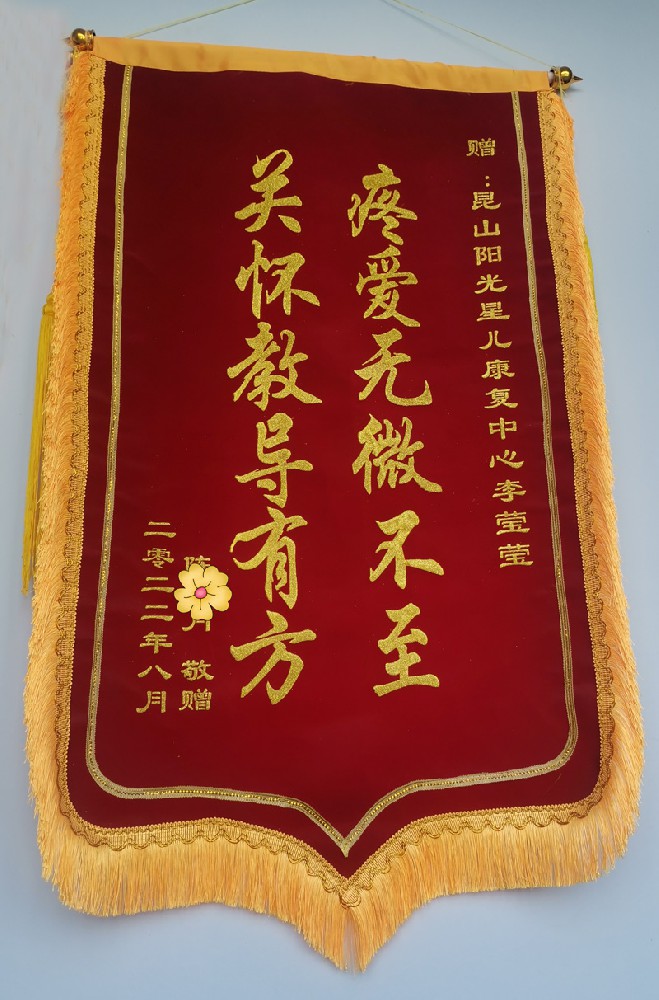 赠：昆山阳光星儿康复中心李莹莹
疼爱无微不至
关怀教导有方
敬赠
二零二二年八月